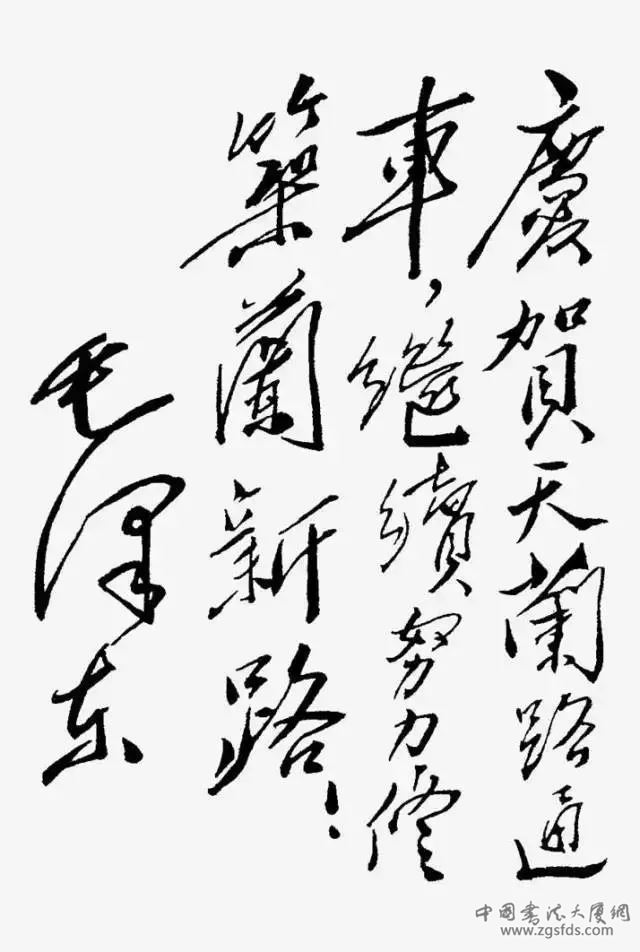 慶賀天蘭路通
車，繼續努力修
築蘭新路！
毛澤东
中國書法大厦網
www.zgsfds.com